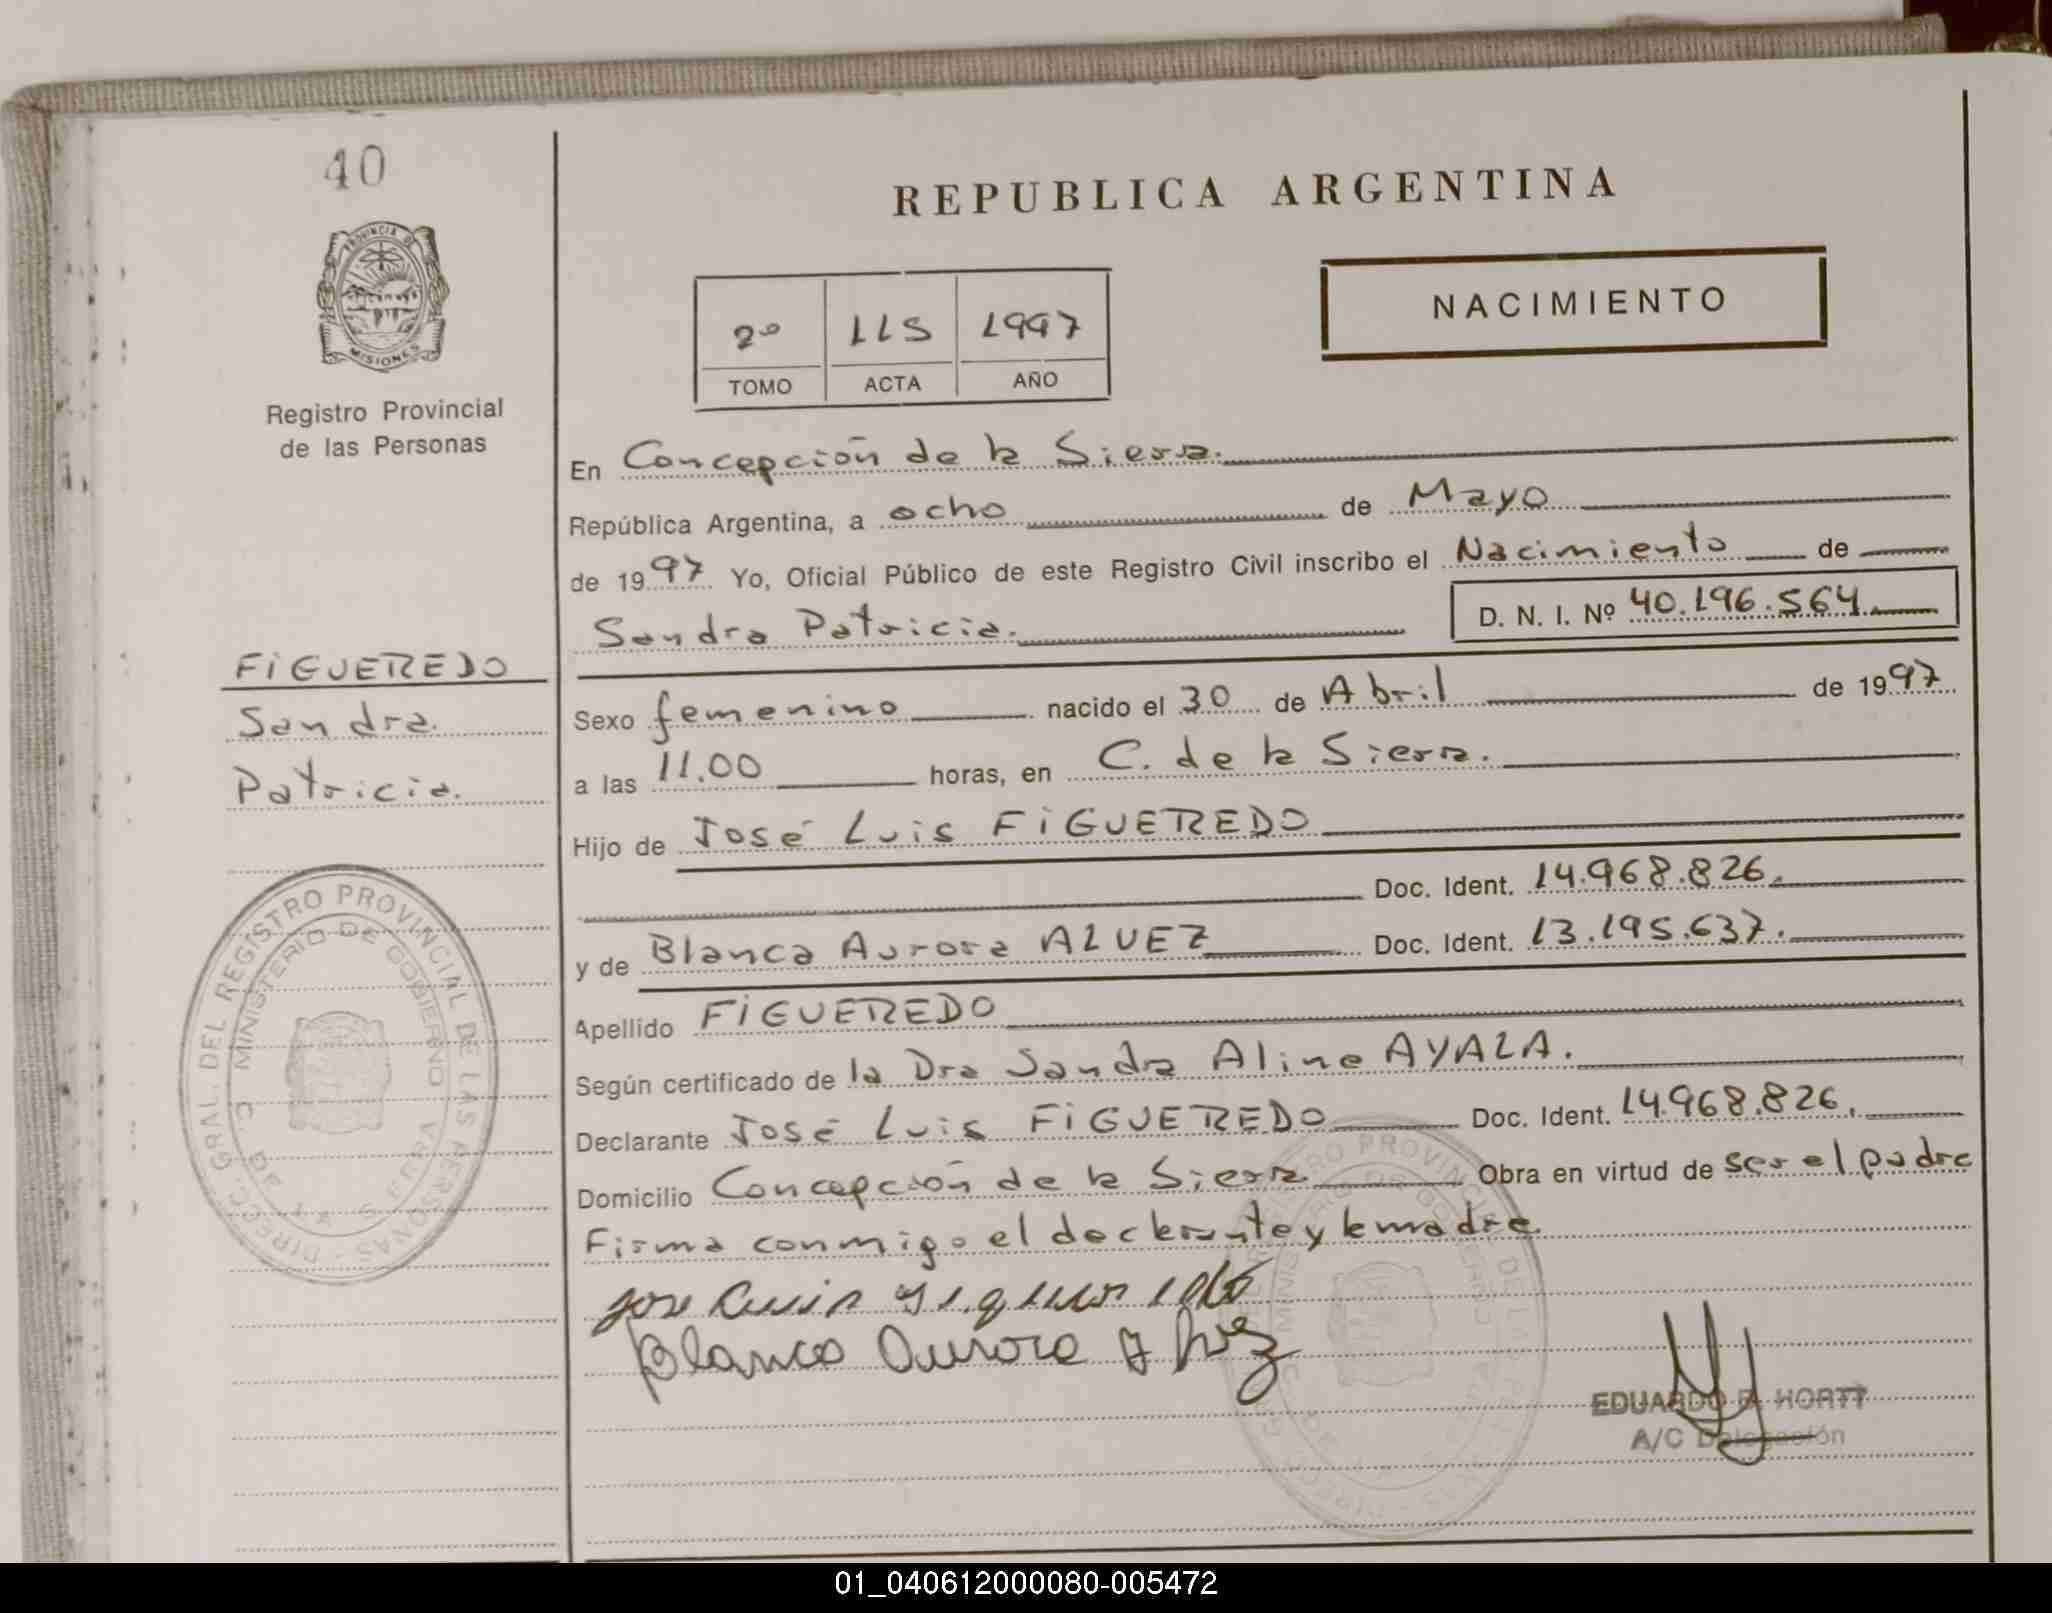 40
PROVINCIA DE
MISIONES
Registro Provincial
de las Personas
FIGUEREDO
Sandra
Patricia.
DIRECC. GRAL. DEL REGISTRO PROVINCIAL DE LAS PERSONAS
MINISTERIO DE GOBIERNO
REPUBLICA ARGENTINA
NACIMIENTO
2º 115 1997
TOMO ACTA AÑO
En Concepción de la Sierra.
República Argentina, a ocho de Mayo
de 1997 Yo, Oficial Público de este Registro Civil inscribo el Nacimiento de
Sandra Patricia. D. N. I. Nº 40.196.564.
Sexo femenino nacido el 30 de Abril de 1997
a las 11.00 horas, en C. de la Sierra.
Hijo de José Luis FIGUEREDO
Doc. Ident. 14.968.826.
y de Blanca Aurora ALVEZ Doc. Ident. 13.195.637.
Apellido FIGUEREDO
Según certificado de la Dra Sandra Aline AYALA.
Declarante José Luis FIGUEREDO Doc. Ident. 14.968.826.
Domicilio Concepción de la Sierra Obra en virtud de ser el padre
Firma conmigo el declarante y la madre.
Jose Luis Figueredo
Blanca Aurora Alvez
EDUARDO R. HORTT
A/C Delegación
01_040612000080-005472